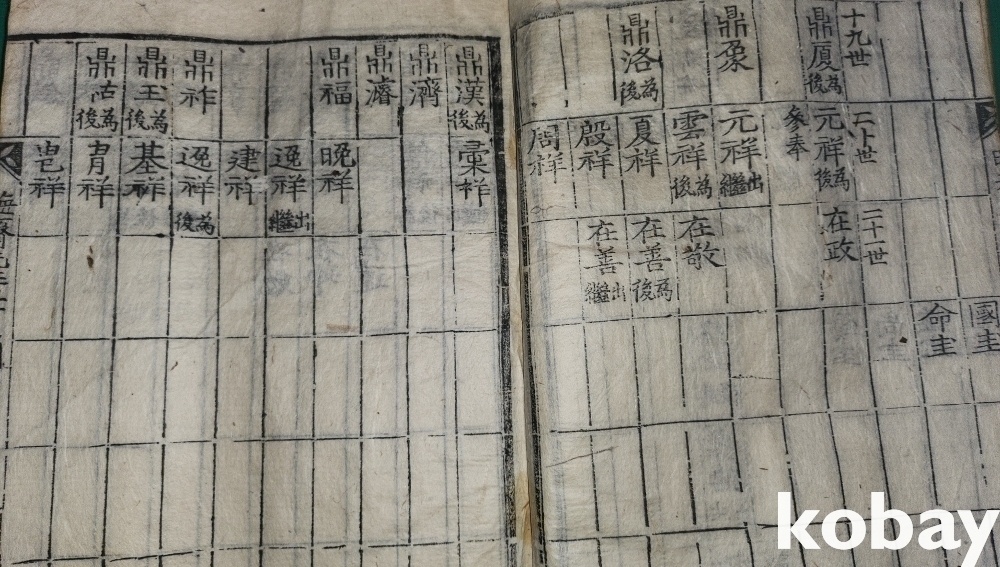 國圭
命圭
十九世
二十世
二十一世
鼎厦為後
元祥為後
在政
參奉
鼎象
元祥出繼
雲祥為後
在敬
鼎洛為後
夏祥
在善為後
殷祥
在善出繼
周祥
鼎漢為後
彙祥
鼎濟
鼎濬
鼎福
晩祥
逸祥出繼
建祥
鼎祚
逸祥為後
鼎玉為後
基祥
為後
胄祥
kobay